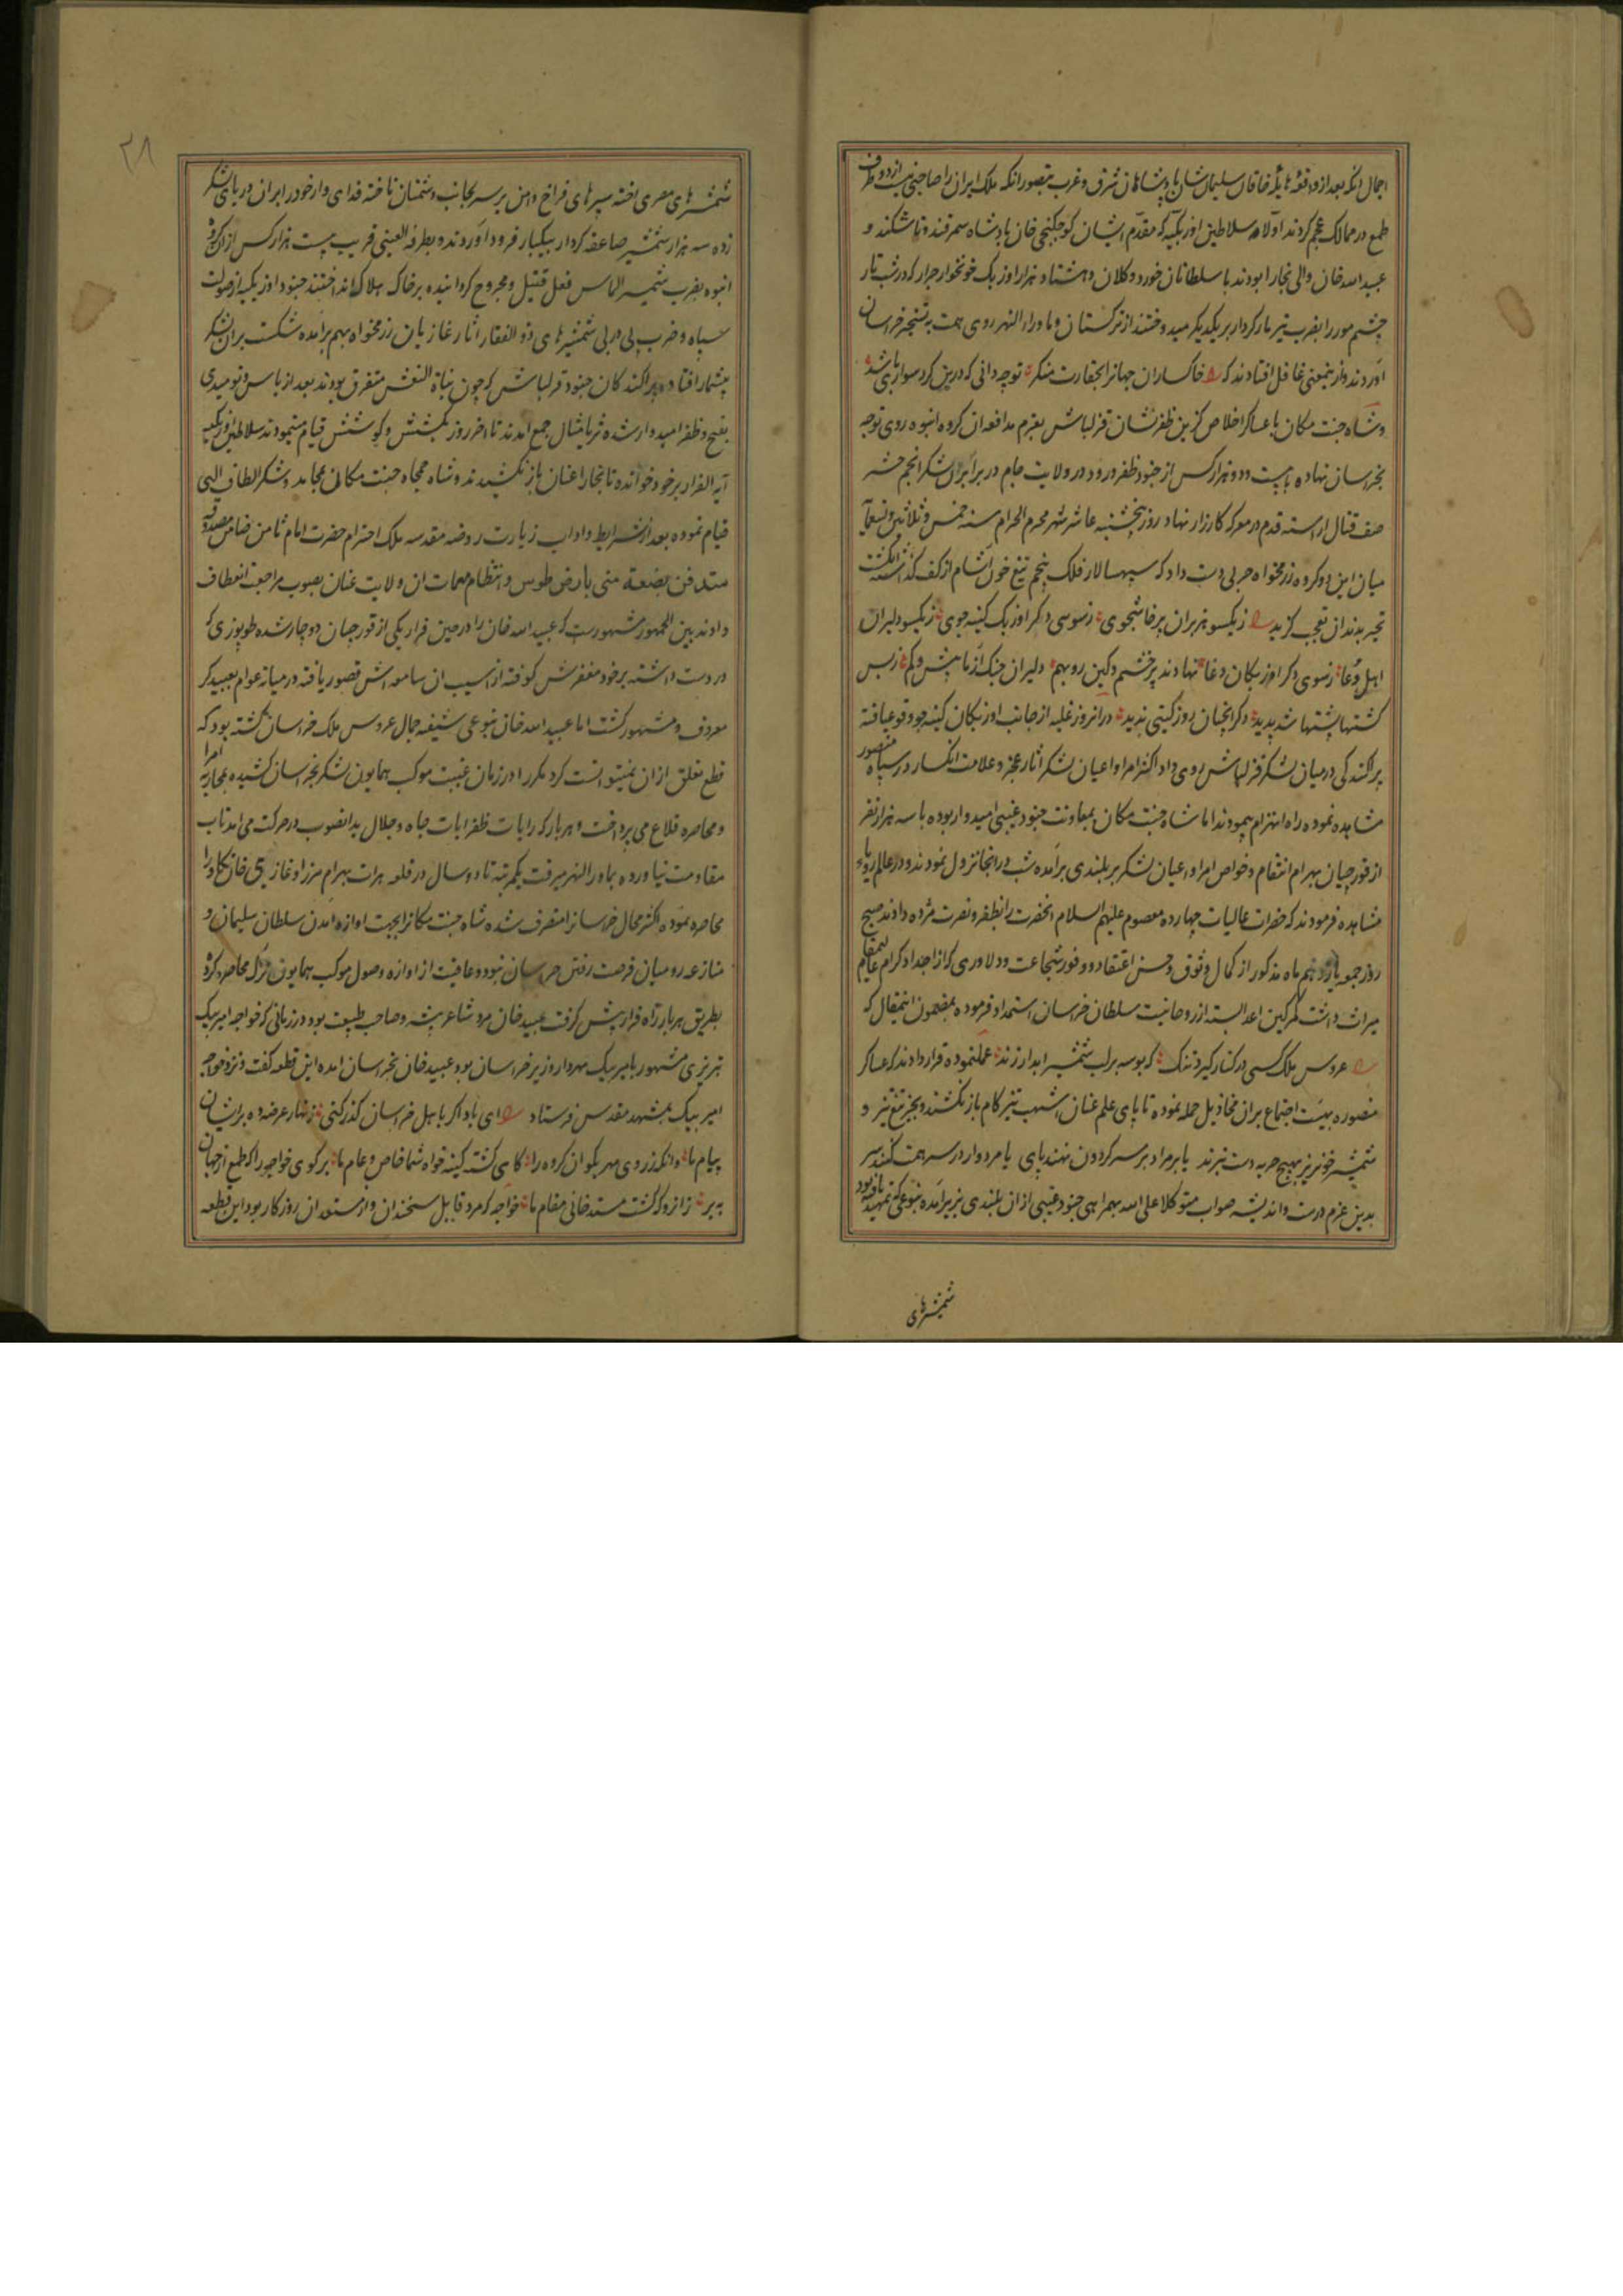 اجمال انکه بعد از واقعهٔ هایلهٔ خاقان سلیمان شان پادشاهان شرق و غرب بتصور انکه ملک ایران را صاحبی نیست از دو طرف
طمع در ممالک عجم کردند اولا سلاطین اوزبکیه که مقدم ایشان کوچکنجی خان پادشاه سمرقند و تاشکند و
عبید الله خان والی بخارا بودند با سلطانان خورد و کلان و هشتاد هزار اوزبک خونخوار جرار که در شب تار
چشم مور را بضرب تیر مار کردار بر یکدیکر میدوختند از ترکستان و ماوراء النهر روی همت به تسخیر خراسان
آوردند و از ینمعنی غافل افتادند که خاکساران جهانرا بحقارت منکر توچه دانی که درین کرد سواری باشد
و شاه جنت مکان با عساکر اخلاص کزین ظفر نشان قزلباش بعزم مدافعه ان کروه انبوه روی توجه
بخراسان نهاده با بیست و دو هزار کس از جنود ظفر ورود در ولایت جام در برابر ان لشکر انجم حشر
صف قتال اراسته قدم در معرکه کارزار نهاد روز پنجشنبه عاشر شهر محرم الحرام سنه خمس و ثلاثین و تسعمایه
میان این دو کروه رزمخواه حربی دست داد که سپهسالار فلک پنجم تیغ خون آشام از کف کذاشته انکشت
تحیر بدندان تعجب کزید ز یکسو هزبران پرخاشجوی ز سوی دکر اوزبک کینه جوی ز یکسو دلیران
اهل دعا ز سوی دکر اوزبکان دغا نهادند پر خشم و کین رو بهم دلیران جنک آزما بیش و کم ز بس
کشتها پشتها شد پدید دکر انچنان روز کیتی ندید در انروز غلبه از جانب اوزبکان کینه جو وقوع یافته
پراکندکی در میان لشکر قزلباش روی داد اکثر امرا و اعیان لشکر آثار عجز و علامت انکسار در سپاه منصور
مشاهده نموده راه انهزام پیمودند اما شاه جنت مکان بمعاونت جنود غیبی امیدوار بوده با سه هزار نفر
از قورچیان بهرام انتقام و خواص امرا و اعیان لشکر بر بلندی برآمده شب در انجا نزول نمودند و در عالم رویاء
مشاهده فرمودند که حضرات عالیات چهارده معصوم علیهم السلام انحضرت را بظفر و نصرت مژده دادند صبح
روز جمعه یازدهم ماه مذکور از کمال وثوق و حسن اعتقاد و وفور شجاعت و دلاوری که از اجداد کرام عالیمقام
میراث داشت کمر کین اعدا بسته از روحانیت سلطان خراسان استمداد فرموده بمضمون اینمقال که
عروس ملک کسی در کنار کیرد تنک که بوسه بر لب شمشیر ابدار زند عملنموده قرار دادند که عساکر
منصوره بهیئت اجتماع بران مخاذیل حمله نموده تا پای علم عنان اشهب تیز کام باز نکشند و بجز تیغ تیز و
شمشیر خونریز بهیچ حربه دست نبرند یا بر مراد بر سر کردون نهند پای یا مردوار در سر همت کنند سر
بدین عزم درست و اندیشه صواب متوکلا علی الله بهمراهی جنود غیبی از ان بلندی بزیر آمده بنوعی که تمهید یافته بود
شمشیرهای
۲۸
شمشیرهای مصری اخته سپرهای فراخ دامن بر سر بجانب دشمنان تاخته فدای وار خود را بر ان دریای لشکر
زده سه هزار شمشیر صاعقه کردار بیکبار فرود آوردند و بطرفة العینی قریب بیست هزار کس از ان کروه
انبوه بضرب شمشیر الماس فعل قتیل و مجروح کردانیده بر خاک هلاک انداختند جنود اوزبکیه از صولت
سپاه و ضرب پی در پی شمشیرهای ذو الفقار آثار غازیان رزمخواه بهم برآمده شکست بر ان لشکر
بیشمار افتاد و پراکندکان جنود قزلباش که چون بناة النعش متفرق بودند بعد از یاس و نومیدی
بفتح و ظفر امیدوار شده ثریا مثال جمع آمدند تا اخر روز بکشش و کوشش قیام مینمودند سلاطین اوزبکیه
آیه الفرار بر خود خوانده تا بخارا عنان باز نکشیدند و شاه جمجاه جنت مکان بمحامد و شکر الطاف الهی
قیام نموده بعد از شرایط و اداب زیارت روضه مقدسه ملک احترام حضرت امام ثامن ضامن مصدوقه
ستدفن بضعة منی بارض طوس و انتظام مهمات ان ولایت عنان بصوب مراجعت انعطاف
دادند بین الجمهور مشهورست که عبید الله خان را در حین فرار یکی از قورچیان دوچار شده طوپوزی که
در دست داشته بر خود مغفرش کوفته از آسیب ان سامعه اش قصور یافته در میانه عوام بعبید کر
معروف و مشهور کشت اما عبید الله خان بنوعی شیفته جمال عروس ملک خراسان کشته بود که
قطع تعلق از ان نمیتوانست کرد مکرر در زمان غیبت موکب همایون لشکر بخراسان کشیده بمحاربه امرا
و محاصره قلاع می پرداخت و هر بار که رایات ظفر ایات جاه و جلال بدانصوب در حرکت می امد تاب
مقاومت نیاورده بماورالنهر میرفت یکمرتبه تا دو سال در قلعه هرات بهرام میرزا و غازی خان تکلو را
محاصره نموده اکثر محال خراسانرا متصرف شده شاه جنت مکانرا بجهت اوازه آمدن سلطان سلیمان و
منازعه رومیان فرصت رفتن خراسان نبود و عاقبت از اوازه وصول موکب همایون ترک محاصره کرده
بطریق هر بار راه فرار پیش کرفت عبید خان مرد شاعر پیشه و صاحب طبیعت بود در زمانی که خواجه امیر بیک
تبریزی مشهور بامیر بیک مهردار وزیر خراسان بود عبید خان بخراسان امده این قطعه کفت و نزد خواجه
امیر بیک بمشهد مقدس فرستاد ای باد اکر باهل خراسان کذر کنی زنهار عرضه ده بر ایشان
پیام ما وانکه ز روی مهر بکو ان کروه را کای کشته کینه خواه شما خاص و عام ما بر کوی خواجه را که طمع از جهان
به بر ز انرو که کشت مسند خانی مقام ما خواجه که مرد قابل سخندان و از مستعدان روزکار بود این قطعه